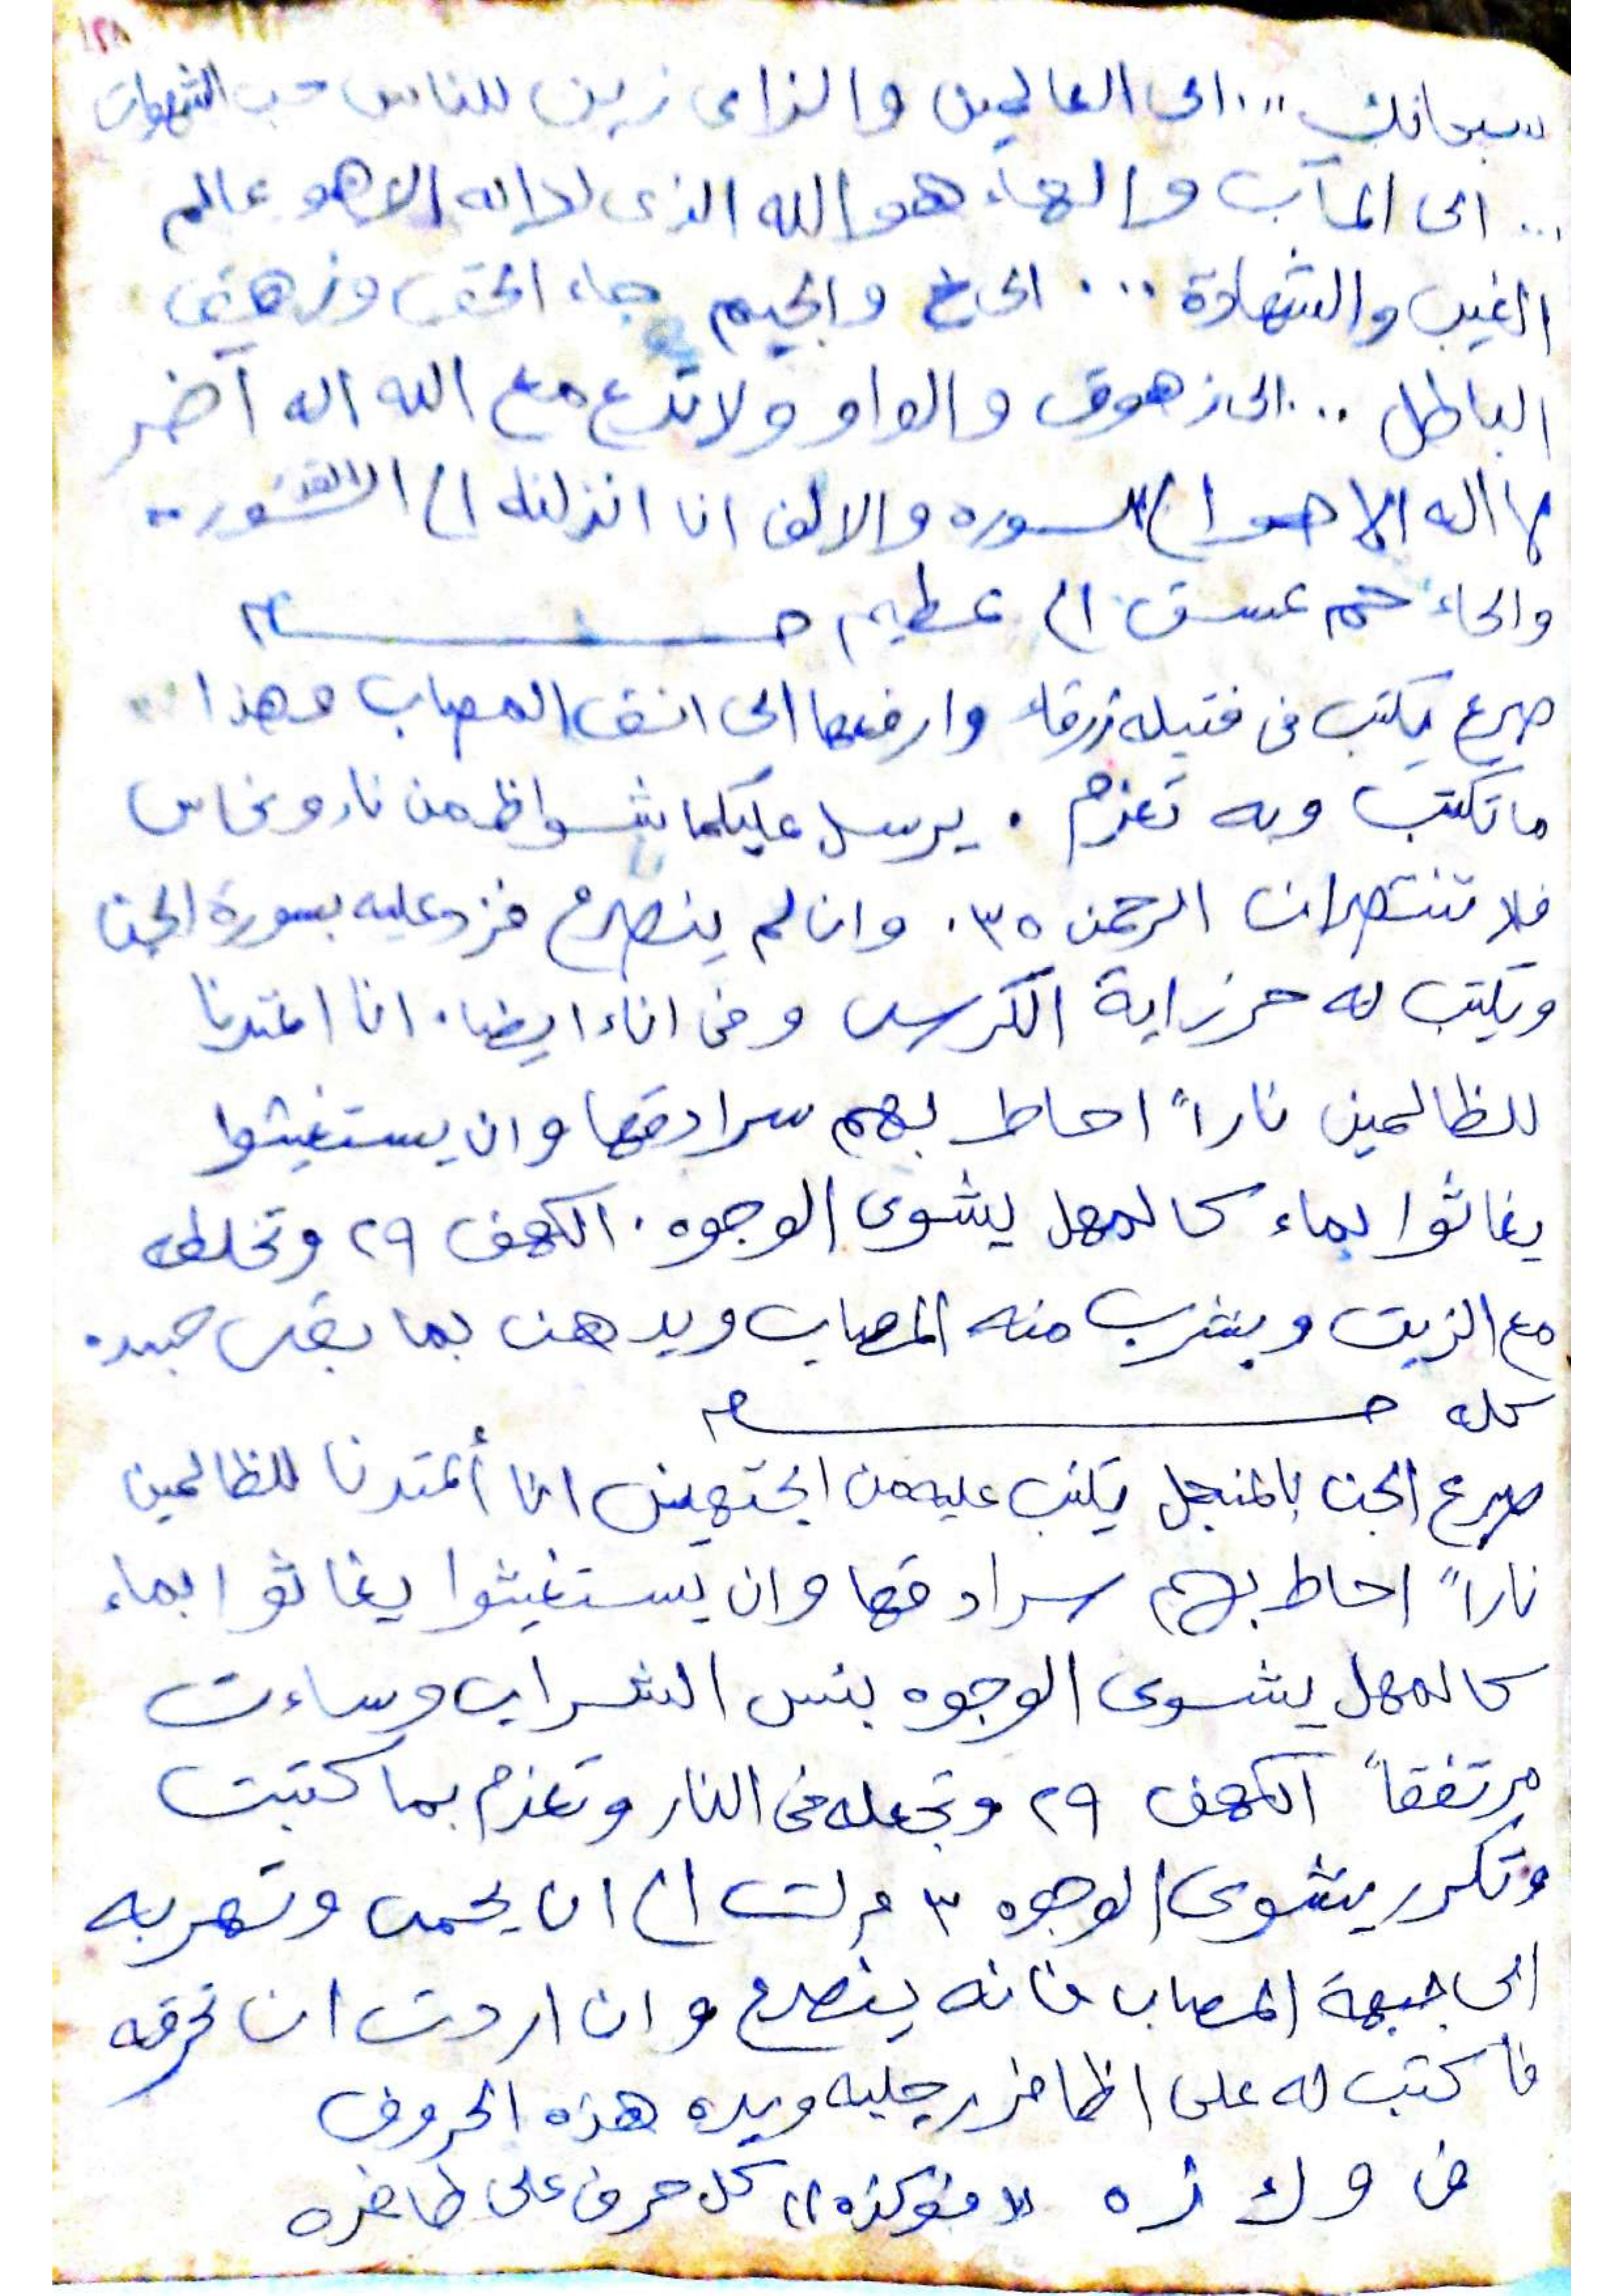 سبحانك ... الى العالمين والزاى زين للناس حب الشهوات
... الى المآب والهاء هو الله الذى لا اله الا هو عالم
الغيب والشهادة ... الخ والجيم جاء الحق وزهق
الباطل ... الى زهوق والواو ولا تدع مع الله اله آخر
لا اله الا هو الخ السوره والالف انا انزلنه الخ
والحاء حم عسق الخ عظيم
صرع يكتب فى فتيله زرقاء وارفعها الى انف المصاب وهذا
ما تكتب وبه تعزم . يرسل عليكما شواظ من نار ونحاس
فلا تنتصران الرحمن ٣٥ . وان لم ينصرع فزد عليه بسورة الجن
ويكتب له حرز اية الكرسى وفى اناء ايضا . انا اعتدنا
للظالمين ناراً احاط بهم سرادقها وان يستغيثوا
يغاثوا بماء كالمهل يشوى الوجوه . الكهف ٢٩ وتخلطه
مع الزيت ويشرب منه المصاب ويدهن بما بقى جسده
كله
صرع الجن بالمنجل يكتب عليه من الجهتين انا أعتدنا للظالمين
ناراً احاط بهم سرادقها وان يستغيثوا يغاثوا بماء
كالمهل يشوى الوجوه بئس الشراب وساءت
مرتفقاً الكهف ٢٩ وتجعله فى النار وتعزم بما كتبت
وتكرر يشوى الوجوه ٣ مرات الى ان يحمى
الى جبهة المصاب فانه ينصرع وان اردت ان تحرقه
فاكتب له على اظافر رجليه ويده هذه الحروف
ف و ك ز ه كل حرف على ظافره